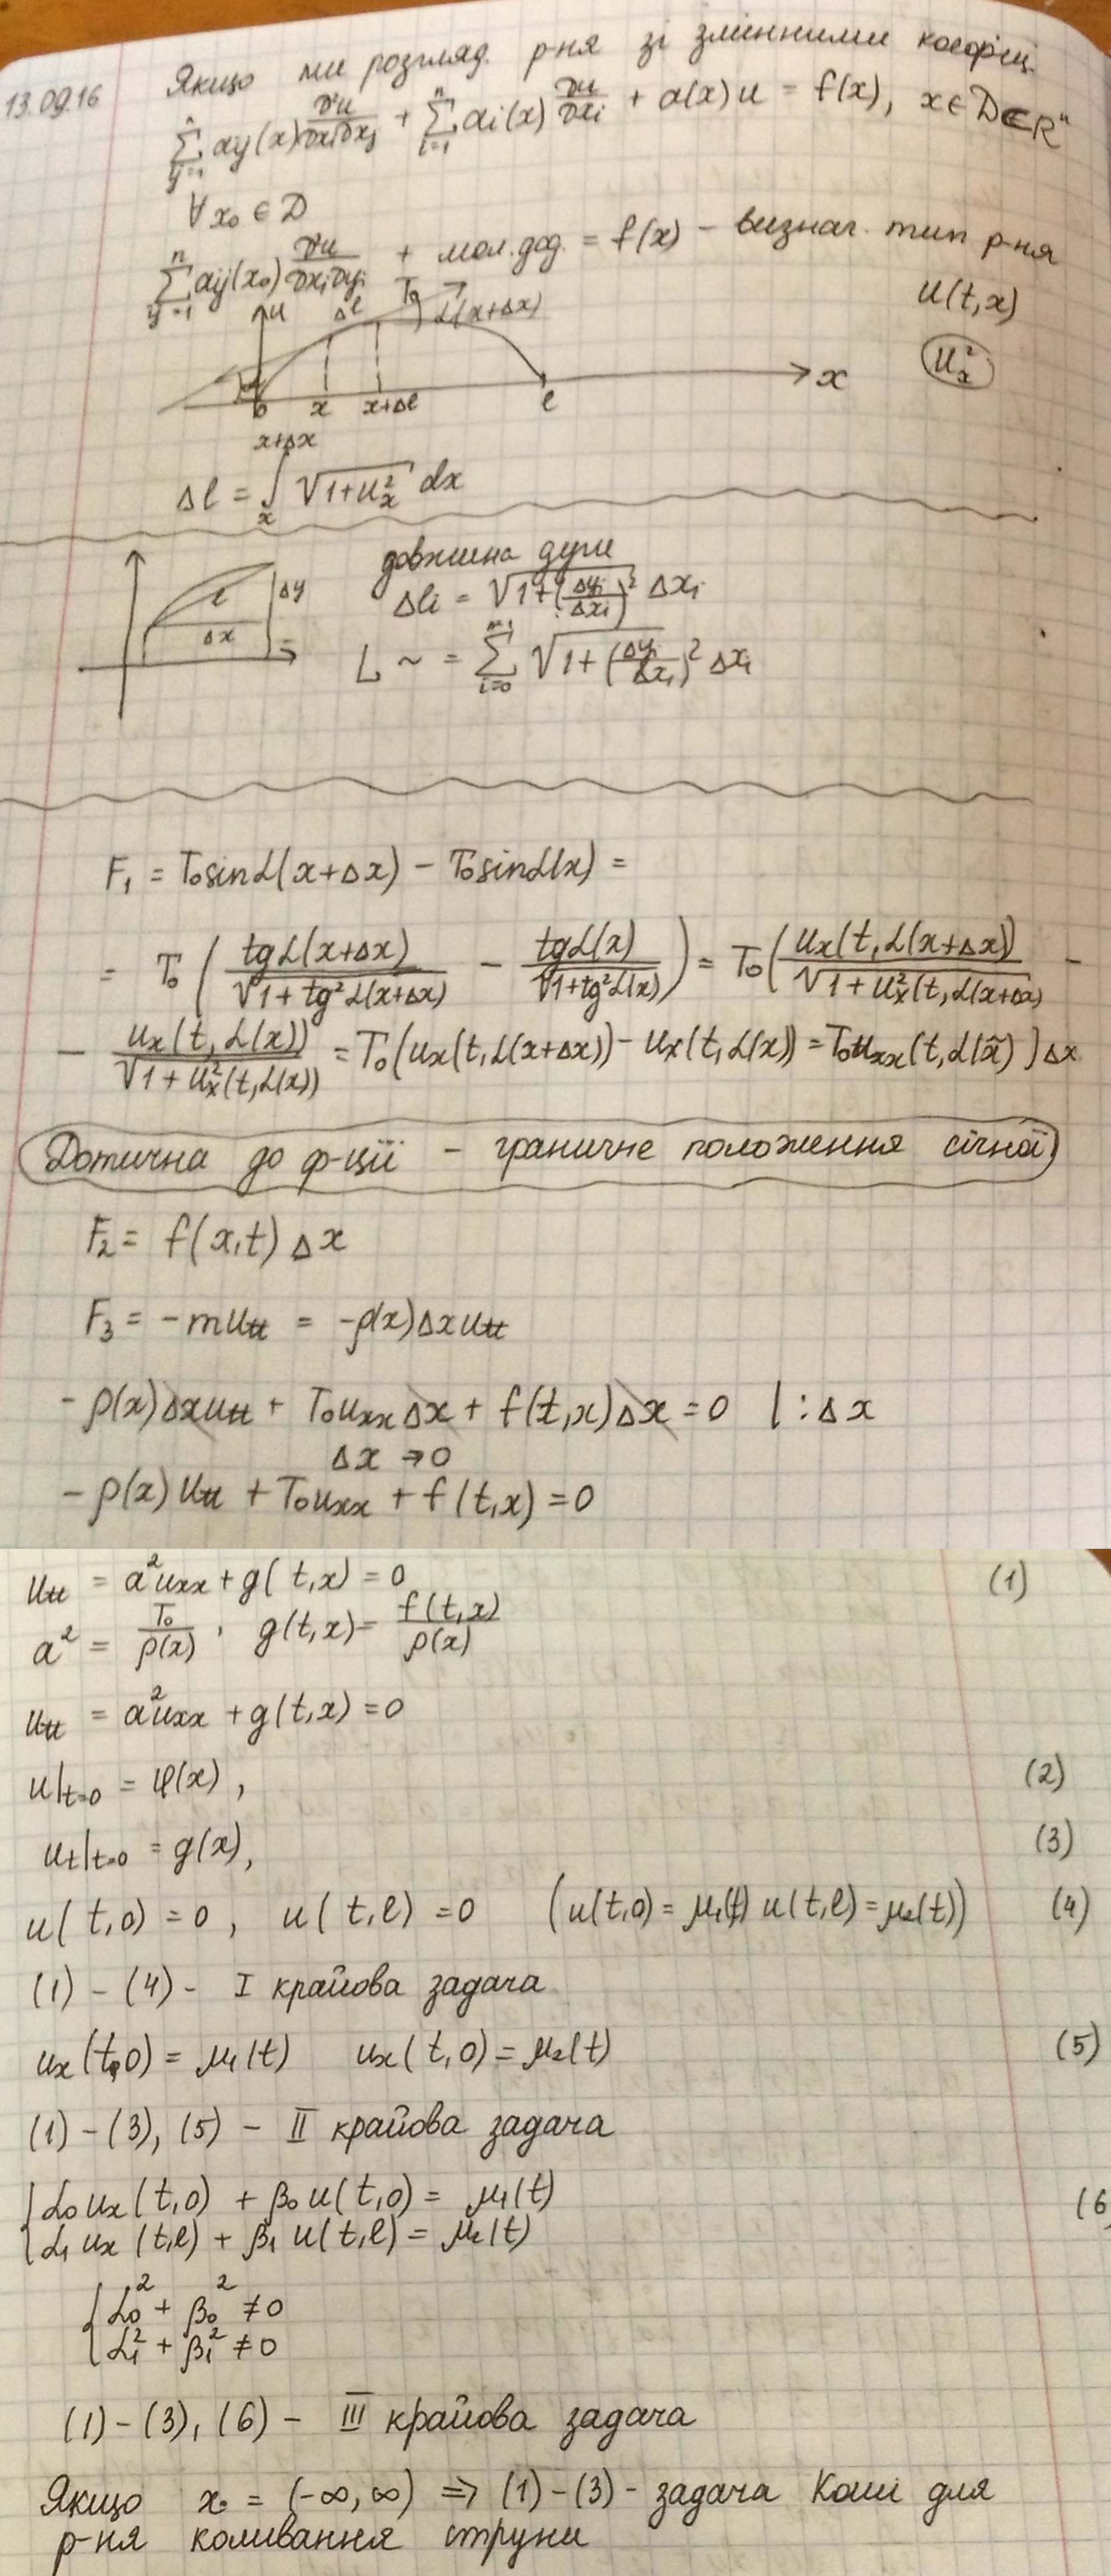 13.09.16
Якщо ми розгляд. р-ня зі змінними коефіц.
∑ aij(x) ∂²u/∂xi∂xj + ∑ ai(x) ∂u/∂xi + a(x)u = f(x), x ∈ D ⊂ Rⁿ
∀x₀ ∈ D
∑ aij(x₀) ∂²u/∂xi∂yi + мол. дод. = f(x) – визнач. тип р-ня
u(t,x)
u Δl T₀ α(x+Δx)
uₓ²
0 x x+Δl l x
Δl = ∫ₓ^(x+Δx) √(1+uₓ²) dx
довжина дуги
l Δy Δx
Δli = √(1+(Δyi/Δxi)²) Δxi
L ~ = ∑_(i=0)^(n-1) √(1+(Δyi/Δxi)²) Δxi
F₁ = T₀sinα(x+Δx) – T₀sinα(x) =
= T₀ ( tgα(x+Δx)/√(1+tg²α(x+Δx)) – tgα(x)/√(1+tg²α(x)) ) = T₀( uₓ(t,α(x+Δx))/√(1+uₓ²(t,α(x+Δx)) –
– uₓ(t,α(x))/√(1+uₓ²(t,α(x)) = T₀(uₓ(t,α(x+Δx)) – uₓ(t,α(x)) = T₀uₓₓ(t,α(x̃))Δx
Дотична до ф-ції – граничне положення січної
F₂ = f(x,t)Δx
F₃ = -muₜₜ = -ρ(x)Δxuₜₜ
-ρ(x)Δxuₜₜ + T₀uₓₓΔx + f(t,x)Δx = 0 | :Δx
Δx → 0
-ρ(x)uₜₜ + T₀uₓₓ + f(t,x) = 0
uₜₜ = a²uₓₓ + g(t,x) = 0 (1)
a² = T₀/ρ(x), g(t,x) = f(t,x)/ρ(x)
uₜₜ = a²uₓₓ + g(t,x) = 0
u|ₜ₌₀ = φ(x), (2)
uₜ|ₜ₌₀ = g(x), (3)
u(t,0) = 0, u(t,l) = 0 (u(t,0) = μ₁(t) u(t,l) = μ₂(t)) (4)
(1) – (4) – I крайова задача
uₓ(t,0) = μ₁(t) uₓ(t,0) = μ₂(t) (5)
(1) – (3), (5) – II крайова задача
{ α₀uₓ(t,0) + β₀u(t,0) = μ₁(t) (6
α₁uₓ(t,l) + β₁u(t,l) = μ₂(t)
{ α₀² + β₀² ≠ 0
α₁² + β₁² ≠ 0
(1) – (3), (6) – III крайова задача
Якщо x = (-∞,∞) ⇒ (1)–(3) – задача Коші для
р-ня коливання струни